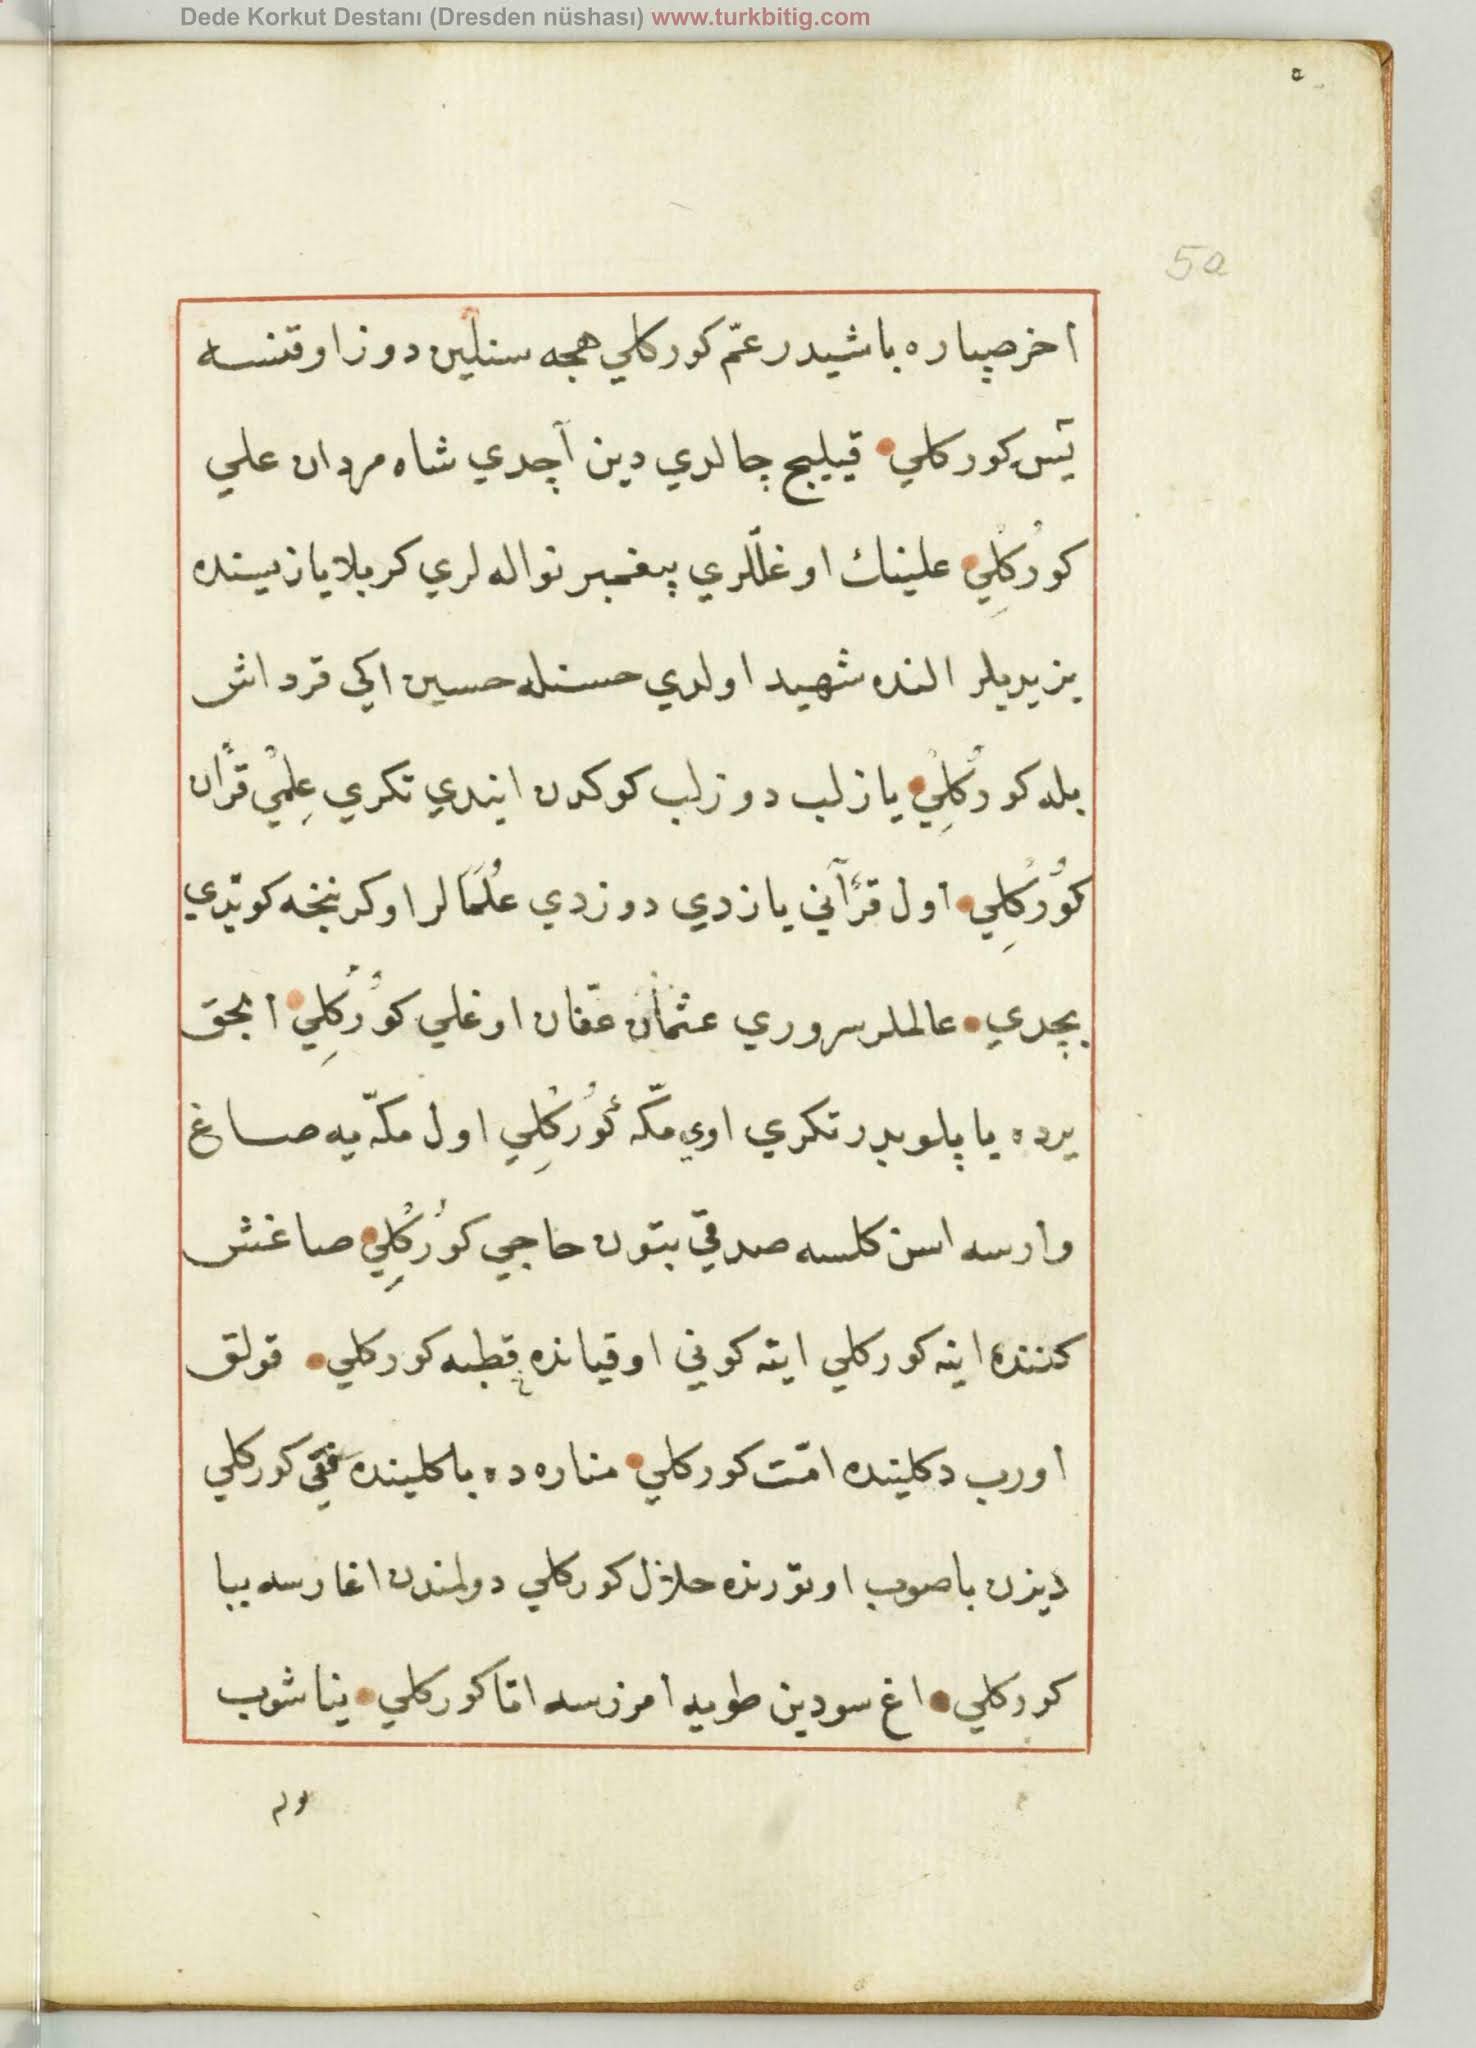 Dede Korkut Destanı (Dresden nüshası) www.turkbitig.com
٥
5a
اخر صپاره باشیدر عمّ کورکلي هجه سنلین دوز اوقنسه
یٓس کورکلي قیلیج چالدي دین آچدي شاه مردان علي
کوُرکلِي علینك اوغللري پیغمبر نواله لري کربلا یازیسنده
یزیدیلر النده شهید اولدي حسنله حسین اکي قرداش
بله کورُکلِي یازلب دوزلب کوکدن ایندي تکري عِلمْي قرآن
کوُرُکلِي اول قرآني یازدي دوزدي عُلَمَالر اوکرننجه کویدي
بچدي عالملر سروري عثمان عفّان اوغلي کوُرُکلِي الچق
یرده یاپلوبدر تکري اوي مکّه کوُرُکلِي اول مکّه یه صاغ
وارسه اسن کلسه صدقي بتون حاجي کوُرُکلِي صاغش
کننده اینه کورکلي اینه کوني اوقیانده قطبه کورکلي قولق
اورب دکلینده امّت کورکلي مناره ده باکلینده فقي کورکلي
دیزن باصوب اوتورنده حلال کورکلي دولمندن اغارسه ببا
کورکلي اغ سودین طویه امزرسه انا کورکلي یناشوب